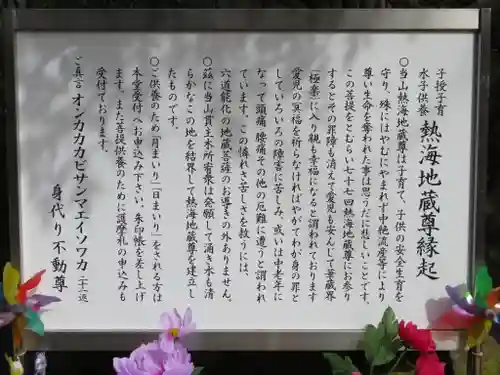 子授子育
水子供養 熱海地蔵尊縁起
○当山熱海地蔵尊は子育て、子供の安全生育を
守り、殊にはやむにやまれず中絶流産等により
尊い生命を奪われた事は思うだに悲しいことです。
この菩提をとむらい七十七回熱海地蔵尊にお参り
するとその罪障も消えて愛児も安んじて華蔵界
「極楽」に入り親も幸福になると謂われております
愛児の冥福を祈らなければやがてわが身の罪と
していろいろの障害に苦しみ、或いは中老年に
なって頭痛、腰痛その他の厄難に遭うと謂われ
ています。この憐れさ苦しさを救うには、
六道能化の地蔵菩薩のお導きの外ありません。
○茲に当山貫主水所寄衆は発願して涌き水も清
らかなこの地を結界して熱海地蔵尊を建立し
たものです。
○ご供養のため「月まいり」「日まいり」をされる方は
本堂受付へお申込み下さい。朱印帳を差し上げ
ます。また菩提供養のために護摩札の申込みも
受付ております。
ご真言 オンカカカビサンマエイソワカ(二十一返)
身代り不動尊